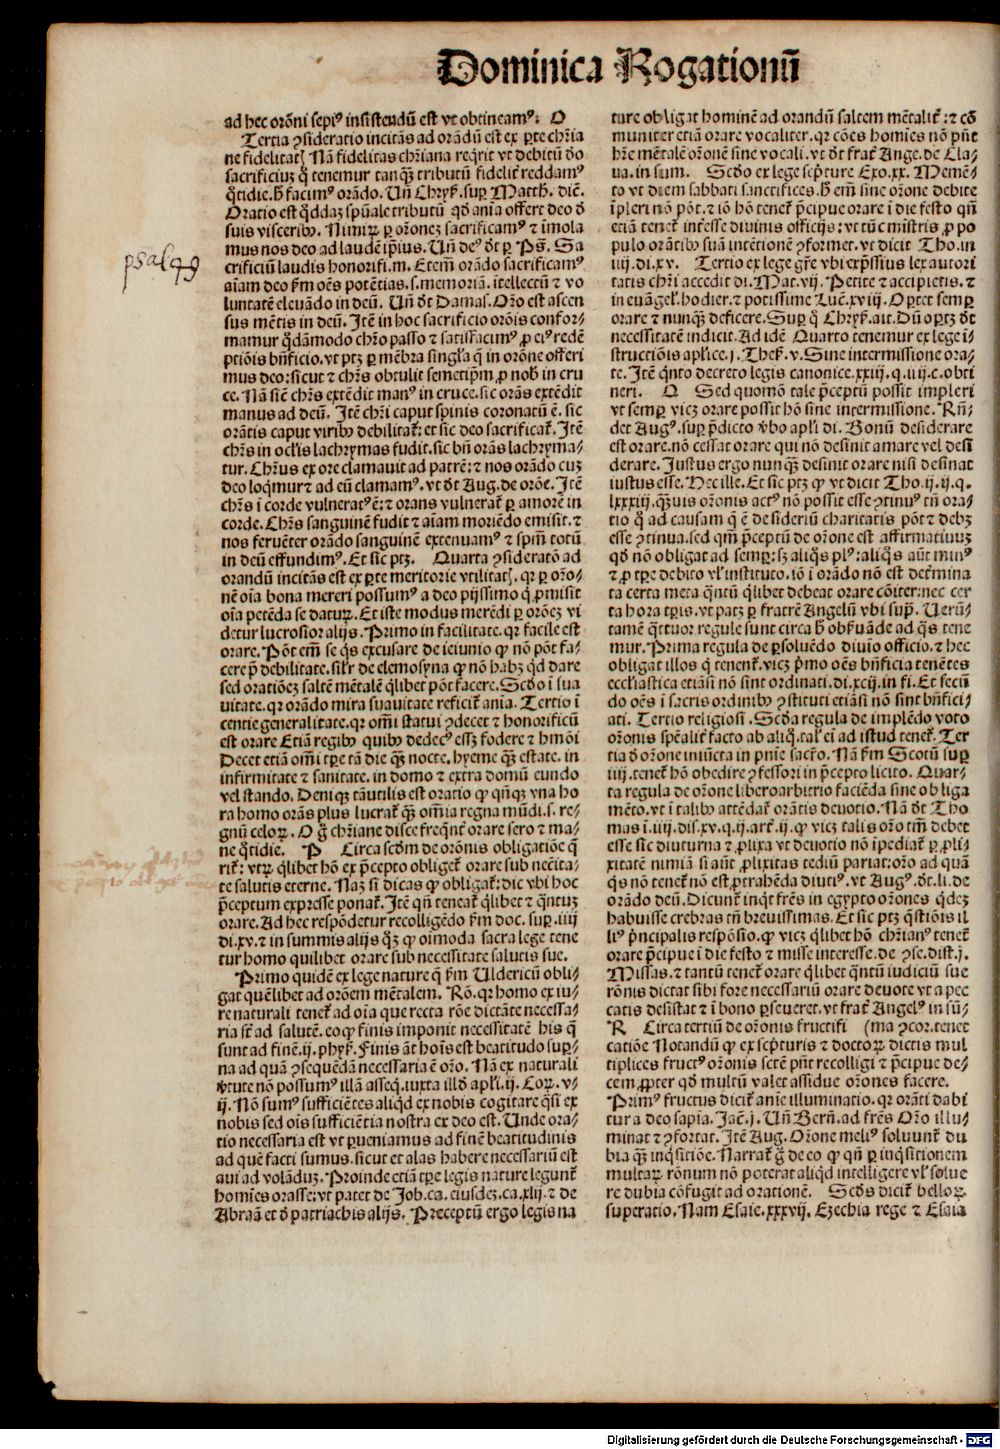 Dominica Rogationū
ad hec orōni sepiꝰ insistendū est vt obtineamꝰ: O
Tertia ꝯsideratio incitās ad orādū est ex ꝑte chr̄ia
ne fidelitatꝭ Nā fidelitas chr̄iana reqͥrit vt debitū do
sacrificiuꝫ qͥ tenemur tanqꝫ tributū fidelit̄ reddamꝰ
qͦtidie. h̄ facimꝰ orādo. Un̄ Chryß. suꝑ Matth. dic̄.
Oratio est qͥddaꝫ spūale tributū qd̄ anīa offert deo d̄
suis visceribꝰ. Nimiꝝ ꝑ orōneꝫ sacrificamꝰ ⁊ imola
mus nos deo ad laudē ipsius. Un̄ deꝰ dt̄ ꝑ Pꝭ. Sa
crificiū laudis honorifi. m. Etem̄ orādo sacrificamꝰ
aīam deo ẜm oēs potētias. s. memoriā. itellectū ⁊ vo
psal 49
luntatē eleuādo in deū. Un̄ dt̄ Damas. Orō est ascen
sus mētis in deū. Itē in hoc sacrificio orōis confor-
mamur qͣdāmodo chr̄o passo ⁊ satisfacimꝰ ꝓ eiꝰ redē
ptiōis bn̄ficio. vt ptꝫ ꝑ mēbra singͣla q̄ in orōne offeri
mus deo: sicut ⁊ chr̄s obtulit semetip̄m ꝓ nob̄ in cru
ce. Nā sic̄ chr̄s extēdit manꝰ in cruce. sic orās extēdit
manus ad deū. Itē chr̄i caput spinis coronatū ē. sic
orātis caput viribꝰ debilitat̄: et sic deo sacrificat̄. Itē
chr̄s in ocl̄is lachrymas fudit. sic bn̄ orās lachryma-
tur. Chr̄us ex ore clamauit ad patrē: ⁊ nos orādo cuꝫ
deo loqͥmur ⁊ ad eū clamamꝰ. vt dt̄ Aug. de orōe. Itē
chr̄s ī corde vulneratꝰ ē: ⁊ orans vulnerat̄ ꝑ amorē in
corde. Chr̄s sanguinē fudit ⁊ aīam moriēdo emisit. ⁊
nos feruēter orādo sanguinē extenuamꝰ ⁊ spm̄ totū
in deū effundimꝰ. Et sic ptꝫ. Quarta ꝯsideratō ad
orandū incitās est ex ꝑte meritorie vtilitatꝭ. qꝛ ꝑ orō-
nē oīa bona mereri possumꝰ a deo pijssimo qͥ ꝓmisit
oīa petēda se daturꝝ. Et iste modus merēdi ꝑ orōeꝫ vi
detur lucrosior alijs. Primo in facilitate. qꝛ facile est
orare. Pōt em̄ se qͥs excusare de ieiunio ꝙ nō pōt fa-
cere ꝓ debilitate. silͥr de elemosyna ꝙ nō habꝫ qd̄ dare
sed oratiōeꝫ saltē mētalē qͥlibet pōt facere. Scd̄o ī sua
uitate. qꝛ orādo mira suauitate reficit̄ anīa. Tertio ī
centie generalitate. qꝛ om̄i statui ꝯdecet ⁊ honorificū
est orare Etiā regibꝰ quibꝰ dedecꝫ essꝫ fodere ⁊ hmōi
Decet etiā om̄i tꝑe tā die qꝫ nocte. hyeme qꝫ estate. in
infirmitate ⁊ sanitate. in domo ⁊ extra domū eundo
vel stando. Deniqꝫ tā vtilis est oratio ꝙ qn̄qꝫ vna ho
ra homo orās plus lucrat̄ qꝫ om̄ia regna mūdi. s. re-
gnū celoꝝ. O g̊ chr̄iane disce freqn̄t̄ orare sero ⁊ ma-
ne qͦtidie. P Circa scd̄m de orōnis obligatiōe q̄
rit̄: vtꝝ qͥlibet hō ex p̄cepto obliget̄ orare sub nec̄ita-
te salutis eterne. Naꝫ si dicas ꝙ obligat̄: dic vbi hoc
p̄ceptum expresse ponat̄. Itē qn̄ teneat̄ qͥlibet ⁊ qͣntuꝫ
orare. Ad hec respōdetur recolligēdo ẜm doc. suꝑ. iiij
di. xv. ⁊ in summis alijs qͥꝫ ꝙ oīmoda sacra lege tene
tur homo quilibet orare sub necessitate salutis sue.
Primo quidē ex lege nature q̄ ẜm Uldericū obli-
gat quēlibet ad orōem mētalem. Rō. qꝛ homo ex iu-
re naturali tenet̄ ad oīa que recta rōe dictāte necessa-
ria sūt ad salutē. eo ꝙ finis imponit necessitatē his q̄
sunt ad finē. ij. phyß. Finis āt hoīs est beatitudo suꝑ-
na ad quā ꝯsequēdā necessaria ē orō. Nā ex naturali
v̄tute nō possumꝰ illā asseqͥ. iuxta illd̄ apl̄i. ij. Coꝝ. v-
ij. Nō sumꝰ sufficiētes aliqͥd ex nobis cogitare qͣsi ex
nobis sed ois sufficiētia nostra ex deo est. Unde ora-
tio necessaria est vt ꝑueniamus ad finē beatitudinis
ad quē facti sumus. sicut et alas habere necessariū est
aui ad volāduꝫ. Proinde etiā tꝑe legis nature legunt̄
homīes orasse: vt patet de Job. ca. eiusdeꝫ. ca. xlij. ⁊ de
Abraā et d̄ patriachis alijs. Preceptū ergo legis na
ture obligat hominē ad orandū saltem mētalit̄: ⁊ cō
muniter etiā orare vocaliter. qꝛ cōes homīes nō pn̄t
hr̄e mētalē orōnē sine vocali. vt dt̄ frat̄ Ange. de Cla-
ua. in sum. Scd̄o ex lege sc̄pture Exo. xx. Memē-
to vt diem sabbati sanctifices. h̄ em̄ sine orōne debite
īpleri nō pōt. ⁊ iō hō tenet̄ p̄cipue orare ī die festo qn̄
etiā tenet̄ īteresse diuinis officijs: vt tūc mistris ꝓ po
pulo orātibꝰ suā intētionē ꝯformet. vt dicit Tho. in
iiij. di. xv. Tertio ex lege gr̄e vbi exp̄ssius lex autori
tatis chr̄i accedit di. Mat. vij. Petite ⁊ accipietis. ⁊
in euāgel̄. hodier. ⁊ potissime Luc̄. xviij. Oꝑtet semꝑ
orare ⁊ nunqꝫ deficere. Suꝑ qͦ Chryß. ait. Dū oꝑtꝫ dt̄
necessitatē indicit. Ad idē Quarto tenemur ex lege ī-
structiōis apl̄ice. j. Theß. v. Sine intermissione ora-
te. Itē qͥnto decreto legis canonice. xxiij. q. iiij. c. obti
neri. Q Sed quomō tale p̄ceptū possit impleri
vt semꝑ vicꝫ orare possit hō sine intermissione. Rn̄-
det Augꝰ. suꝑ p̄dicto v̄bo apl̄i di. Bonū desiderare
est orare. nō cessat orare qui nō desinit amare vel desi
derare. Justus ergo nunqꝫ desinit orare nisi desinat
iustus esse. Hec ille. Et sic ptꝫ ꝙ vt dicit Tho. ij. ij. q.
lxxxiij. qͣuis orōnis actꝰ nō possit esse ꝯtinuꝰ tn̄ ora-
tio qͣ ad causam q̄ ē desideriū charitatis pōt ⁊ debꝫ
esse ꝯtinua. sed qm̄ p̄ceptū de orōne est affirmatiuuꝫ
qd̄ nō obligat ad semꝑ: sꝫ aliqͥs plꝰ: aliqͥs aūt minꝰ
⁊ ꝓ tꝑe debito vl̄ instituto. iō ī orādo nō est det̄mina
ta certa meta qͣntū qͥlibet debeat orare cōiter: nec cer
ta hora tꝑis. vt patꝫ ꝑ fratrē Angelū vbi supͣ. Uerū-
tamē qͣttuor regule sunt circa h̄ obß̄uāde ad qͣs tene
mur. Prima regula de ꝑsoluēdo diuīo officio. ⁊ hec
obligat illos qͥ tenent̄. vicꝫ p̄mo oēs bn̄ficia tenētes
ecclesiastica etiāsi nō sint ordinati. di. xcij. in fi. Et secū
do oēs ī sacris ordinibꝰ ꝯstituti etiāsi nō sint bn̄fici-
ati. Tertio religiosi. Scd̄a regula de implēdo voto
orōnis spēalit̄ facto ab aliqͦ. tal̄ em̄ ad istud tenet̄. Ter
tia d̄ orōne iniūcta in pn̄ie sacr̄o. Nā ẜm Scotū suꝑ
iiij. tenet̄ hō obedire ꝯfessori in p̄cepto licito. Quar-
ta regula de orōne liberoarbitrio faciēda sine obliga
mēto. vt ī talibꝰ attēdat̄ orātis deuotio. Nā dt̄ Tho
mas ī. iiij. dis. xv. q. ij. art̄. ij. ꝙ vicꝫ talis orō tm̄ debet
esse sic diuturna ⁊ ꝓlixa vt deuotio nō īpediat̄ ꝑ ꝓli-
xitatē nimiā si aūt ꝓlixitas tediū pariat: orō ad quā
qͥs nō tenet̄ nō est ꝓtrahēda diutiꝰ. vt Augꝰ. dt̄. li. de
orādo deū. Dicunt̄ inqͥt fr̄es in egypto orōnes qͥdeꝫ
habuisse crebras tn̄ breuissimas. Et sic ptꝫ qͣstiōis il
liꝰ pͥncipalis respōsio. ꝙ vicꝫ qͥlibet hō chr̄ianꝰ tenet̄
orare p̄cipue ī die festo ⁊ misse interesse. de ꝯse. dist. j.
Missas. ⁊ tantū tenet̄ orare qͥlibet qͣntū iudiciū sue
rōnis dictat sibi fore necessariū orare deuote vt a pec
catis desistat ⁊ ī bono ꝑseueret. vt frat̄ Angelꝰ in sū-
R Circa tertiū de orōnis fructifi (ma ꝯcor. tenet
catiōe Notandū ꝙ ex sc̄pturis ⁊ doctoꝝ dictis mul
tiplices fructꝰ orōnis sctē pn̄t recolligi ⁊ p̄cipue de-
cem. ꝓpter qd̄ multū valet assidue orōnes facere.
Primꝰ fructus dicit̄ anīe illuminatio. qꝛ orāti dabi
tur a deo sapīa. Jac̄. j. Un̄ Bern̄. ad fr̄es Orō illu-
minat ⁊ ꝯfortat. Itē Aug. Orōne meliꝰ soluunt̄ du
bia qꝫ inqͥsitiōe. Narrat̄ g̊ de eo ꝙ qn̄ ꝑ inqͥsitionem
multaꝝ rōnum nō poterat aliqͥd intelligere vl̄ solue
re dubia cōfugit ad orationē. Scd̄s dicit̄ belloꝝ
superatio. Nam Esaie. xxxvij. Ezechia rege ⁊ Esaia
Digitalisierung gefördert durch die Deutsche Forschungsgemeinschaft - DFG